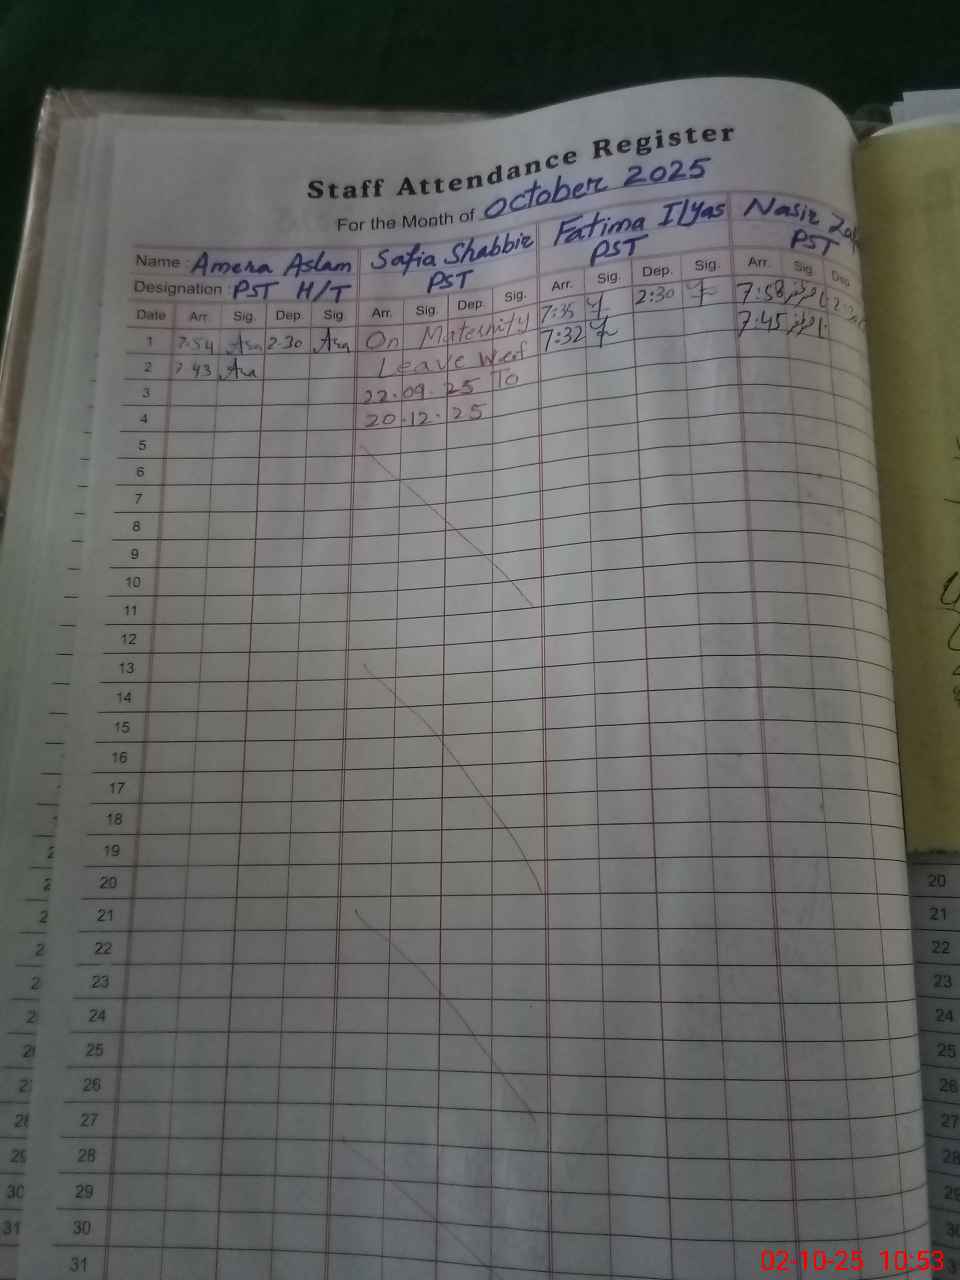 Staff Attendance Register
For the Month of October 2025
Name : Amena Aslam Safia Shabbir Fatima Ilyas Nasir
Designation : PST H/T PST PST PST
Date Arr. Sig. Dep. Sig. Arr. Sig. Dep. Sig. Arr. Sig. Dep. Sig. Arr. Sig. Dep.
1 7:54 Asa 2:30 Asa On Maternity 7:35 2:30 7:58
2 7:43 Asa Leave Wef 7:32 7:45
3 22.09.25 To
4 20.12.25
5
6
7
8
9
10
11
12
13
14
15
16
17
18
19
20
21
22
23
24
25
26
27
28
29
30
31
20
21
22
23
24
25
26
27
28
29
30
31
02-10-25 10:53